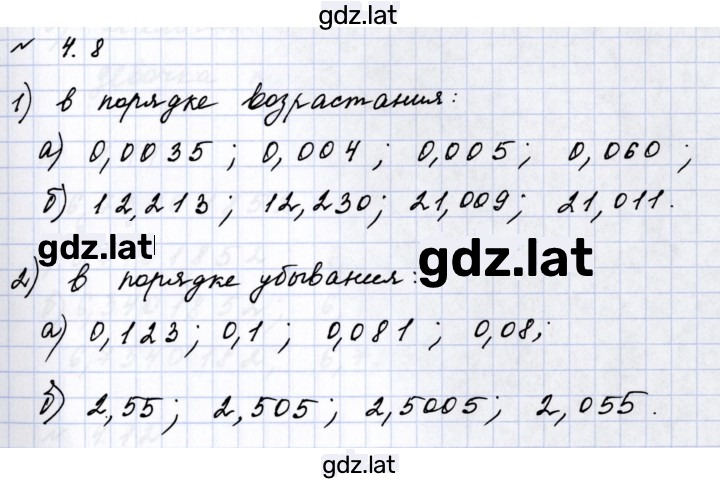 gdz.lat
№ 4.8
1) в порядке возрастания:
а) 0,0035; 0,004; 0,005; 0,060;
б) 12,213; 12,230; 21,009; 21,011.
gdz.lat
gdz.lat
2) в порядке убывания:
а) 0,123; 0,1; 0,081; 0,08;
б) 2,55; 2,505; 2,5005; 2,055.
gdz.lat